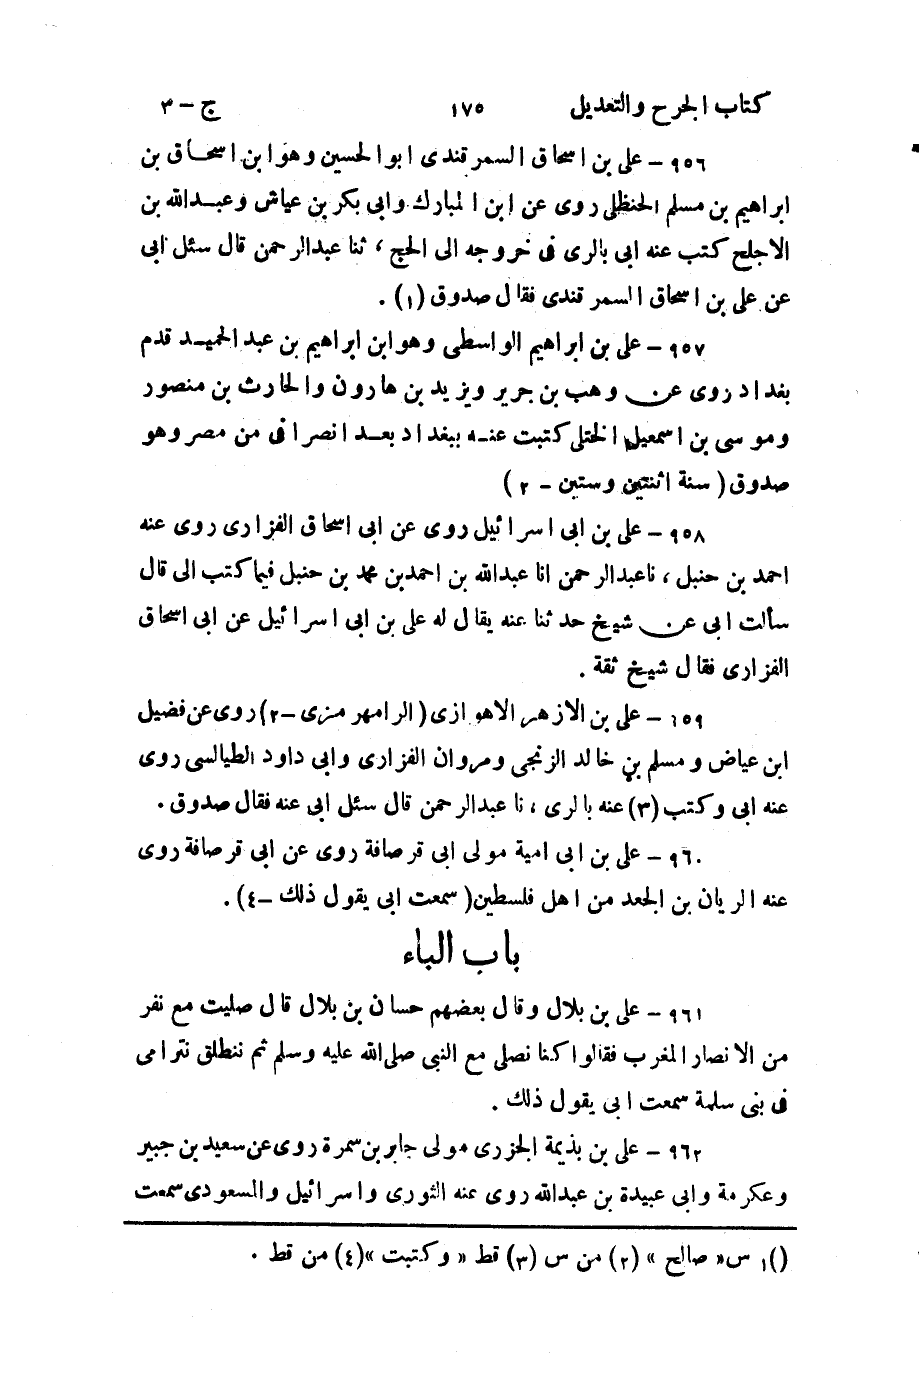 كتاب الجرح والتعديل ١٧٥ ج - ٣
٩٥٦ - على بن اسحاق السمرقندى ابو الحسين وهو ابن اسحاق بن
ابراهيم بن مسلم الحنظلى روى عن ابن المبارك وابى بكر بن عياش وعبدالله بن
الاجلح كتب عنه ابى بالرى فى خروجه الى الحج ، ثنا عبدالرحمن قال سئل ابى
عن على بن اسحاق السمرقندى فقال صدوق (١) .
٩٥٧ - على بن ابراهيم الواسطى وهو ابن ابراهيم بن عبد الحميد قدم
بغداد روى عن وهب بن جرير ويزيد بن هارون والحارث بن منصور
وموسى بن اسمعيل الختلى كتبت عنه ببغداد بعد انصرافى من مصر وهو
صدوق ( سنة اثنتين وستين - ٢ )
٩٥٨ - على بن ابى اسرائيل روى عن ابى اسحاق الفزارى روى عنه
احمد بن حنبل ، نا عبدالرحمن انا عبدالله بن احمد بن محمد بن حنبل فيما كتب الى قال
سألت ابى عن شيخ حدثنا عنه يقال له على بن ابى اسرائيل عن ابى اسحاق
الفزارى فقال شيخ ثقة .
١٥٩ - على بن الازهر الاهوازى ( الرامهرمزى - ٢ ) روى عن فضيل
ابن عياض ومسلم بن خالد الزنجى ومروان الفزارى وابى داود الطيالسى روى
عنه ابى وكتب (٣) عنه بالرى ، نا عبدالرحمن قال سئل ابى عنه فقال صدوق .
٩٦٠ - على بن ابى امية مولى ابى قرصافة روى عن ابى قرصافة روى
عنه الريان بن الجعد من اهل فلسطين ( سمعت ابى يقول ذلك - ٤ ) .
باب الباء
٩٦١ - على بن بلال وقال بعضهم حسان بن بلال قال صليت مع نفر
من الانصار المغرب فقالوا كنا نصلى مع النبى صلى الله عليه وسلم ثم ننطلق نترامى
فى بنى سلمة سمعت ابى يقول ذلك .
٩٦٢ - على بن بذيمة الجزرى مولى جابر بن سمرة روى عن سعيد بن جبير
وعكرمة وابى عبيدة بن عبدالله روى عنه الثورى واسرائيل والمسعودى سمعت
(١) س « صالح » (٢) من س (٣) قط « وكتبت » (٤) من قط .